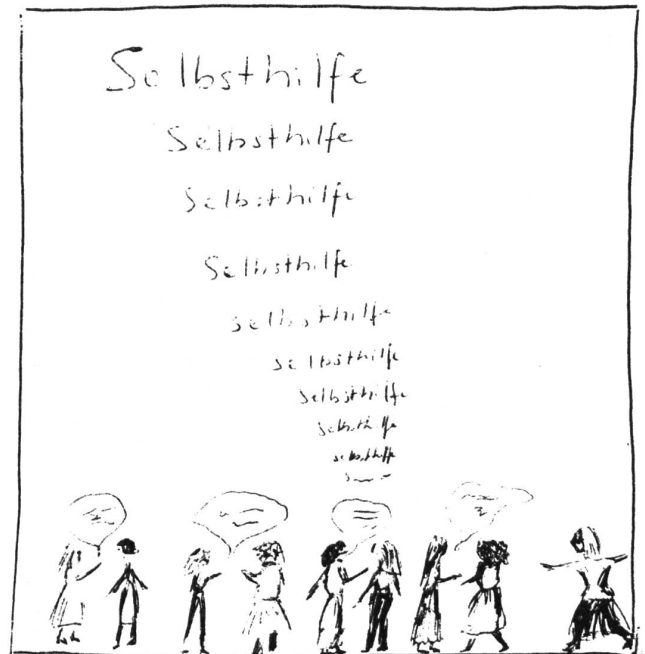 Selbsthilfe
Selbsthilfe
Selbsthilfe
Selbsthilfe
Selbsthilfe
Selbsthilfe
Selbsthilfe
Selbsthilfe
Selbsthilfe